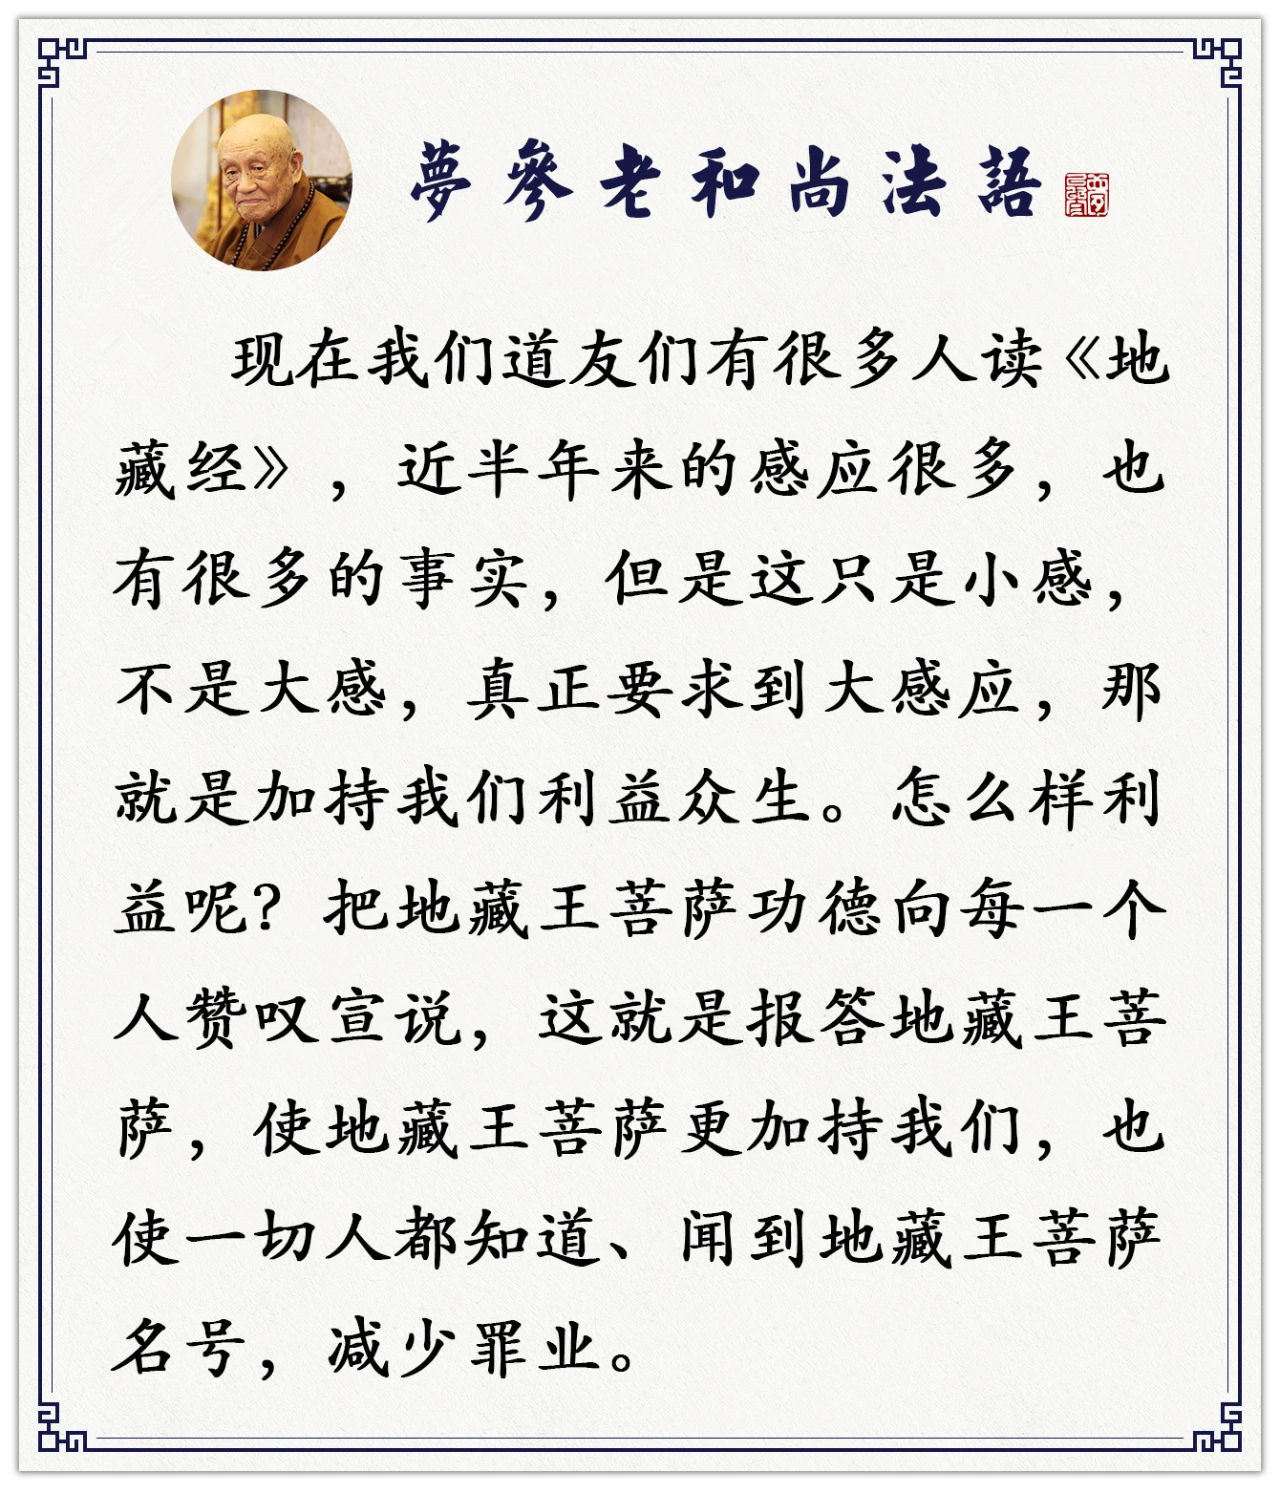 夢參老和尚法語
现在我们道友们有很多人读《地
藏经》，近半年来的感应很多，也
有很多的事实，但是这只是小感，
不是大感，真正要求到大感应，那
就是加持我们利益众生。怎么样利
益呢？把地藏王菩萨功德向每一个
人赞叹宣说，这就是报答地藏王菩
萨，使地藏王菩萨更加持我们，也
使一切人都知道、闻到地藏王菩萨
名号，减少罪业。